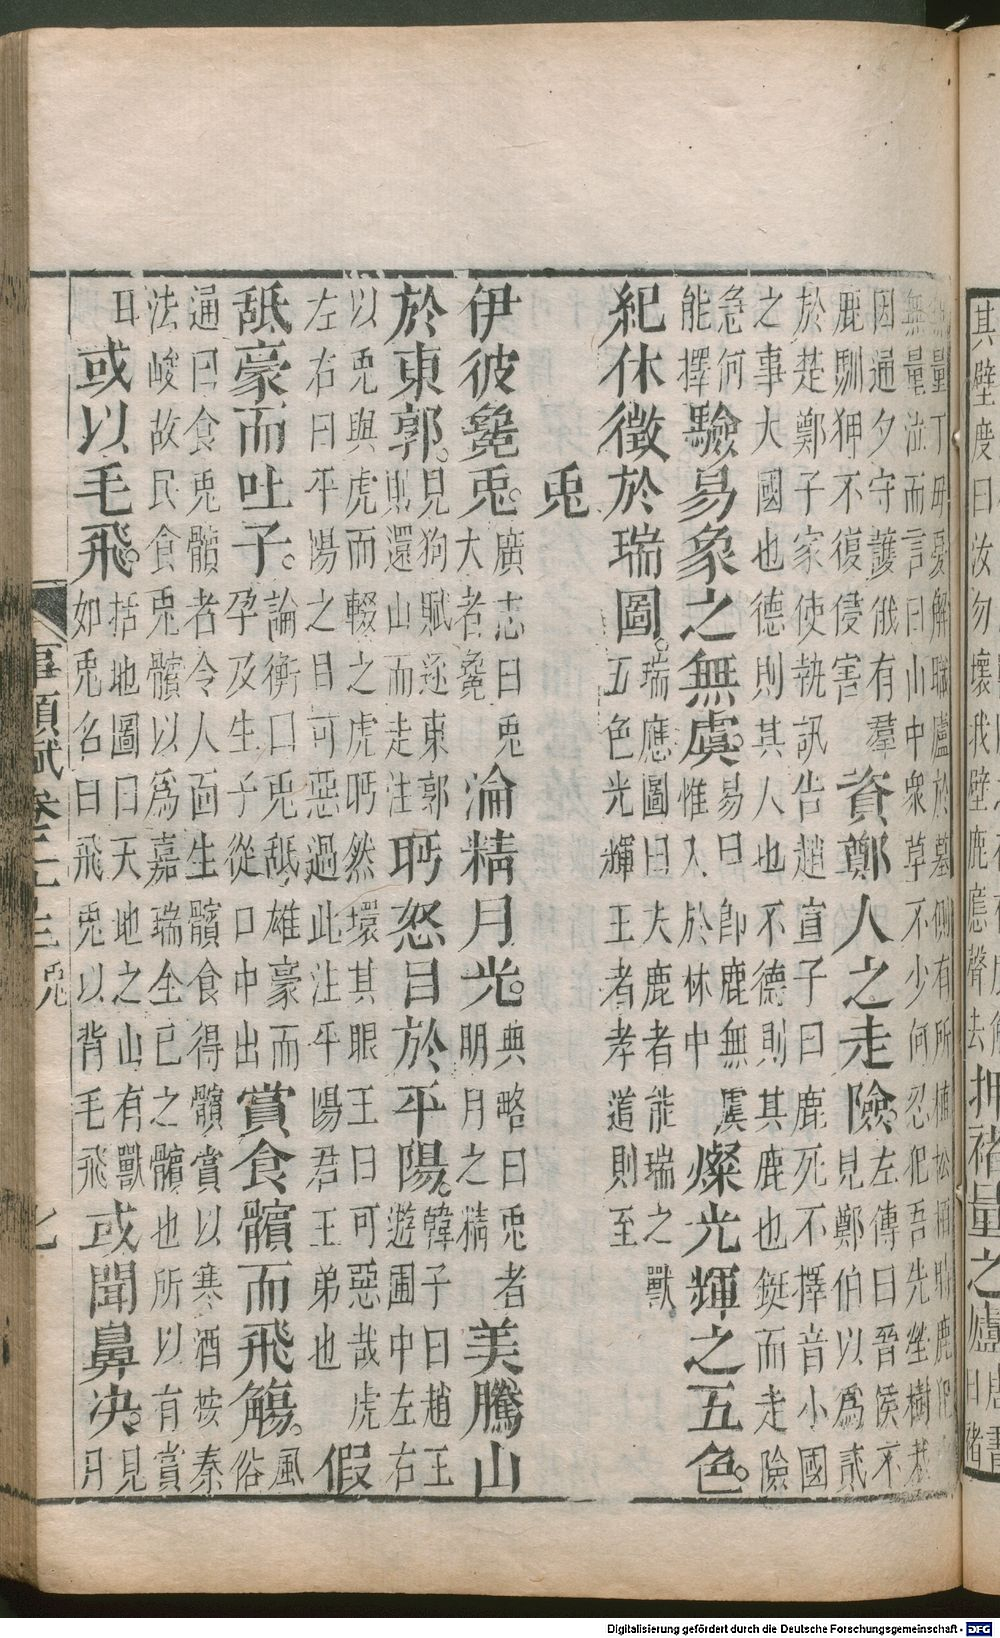 其壁度曰汝勿壞我壁鹿應聲去押褚量之廬
無量丁母憂解職廬於墓側有所植松栢時鹿犯
無量泣而言曰山中衆草不少何忍犯吾先塋樹哉
因通夕守護俄有羣
鹿馴狎不復侵害
資鄭人之走險
左傳曰晉侯不
見鄭伯以為貳
於楚鄭子家使執訊告趙宣子曰鹿死不擇音小國
之事大國也德則其人也不德則其鹿也鋌而走險
急何
能擇
驗易象之無虞
易曰即鹿無虞
惟入於林中
燦光輝之五色
紀休徵於瑞圖
瑞應圖曰夫鹿者能瑞之獸
五色光輝王者孝道則至
兎
伊彼毚兎
廣志曰兎
大者毚
淪精月光
典略曰兎者
明月之精
美騰山
於東郭
見狗賦逐東郭
還山而走注
盻怒目於平陽
韓子曰趙王
遊圃中左右
以兎與虎而輟之虎盻然環其眼王曰可惡哉虎
左右曰平陽之目可惡過此注平陽君王弟也
假
舐豪而吐子
論衡曰兎舐雄豪而
孕及生子從口中出
賞食髕而飛觴
風
俗
通曰食兎髕者令人面生髕食得髕賞以寒酒按秦
法峻故民食兎髕以為嘉瑞全已之髕也所以有賞
耳
或以毛飛
括地圖曰天地之山有獸
如兎名曰飛兎以背毛飛
或聞鼻决
見
月
事類賦卷二十三 兎 七
Digitalisierung gefördert durch die Deutsche Forschungsgemeinschaft - DFG